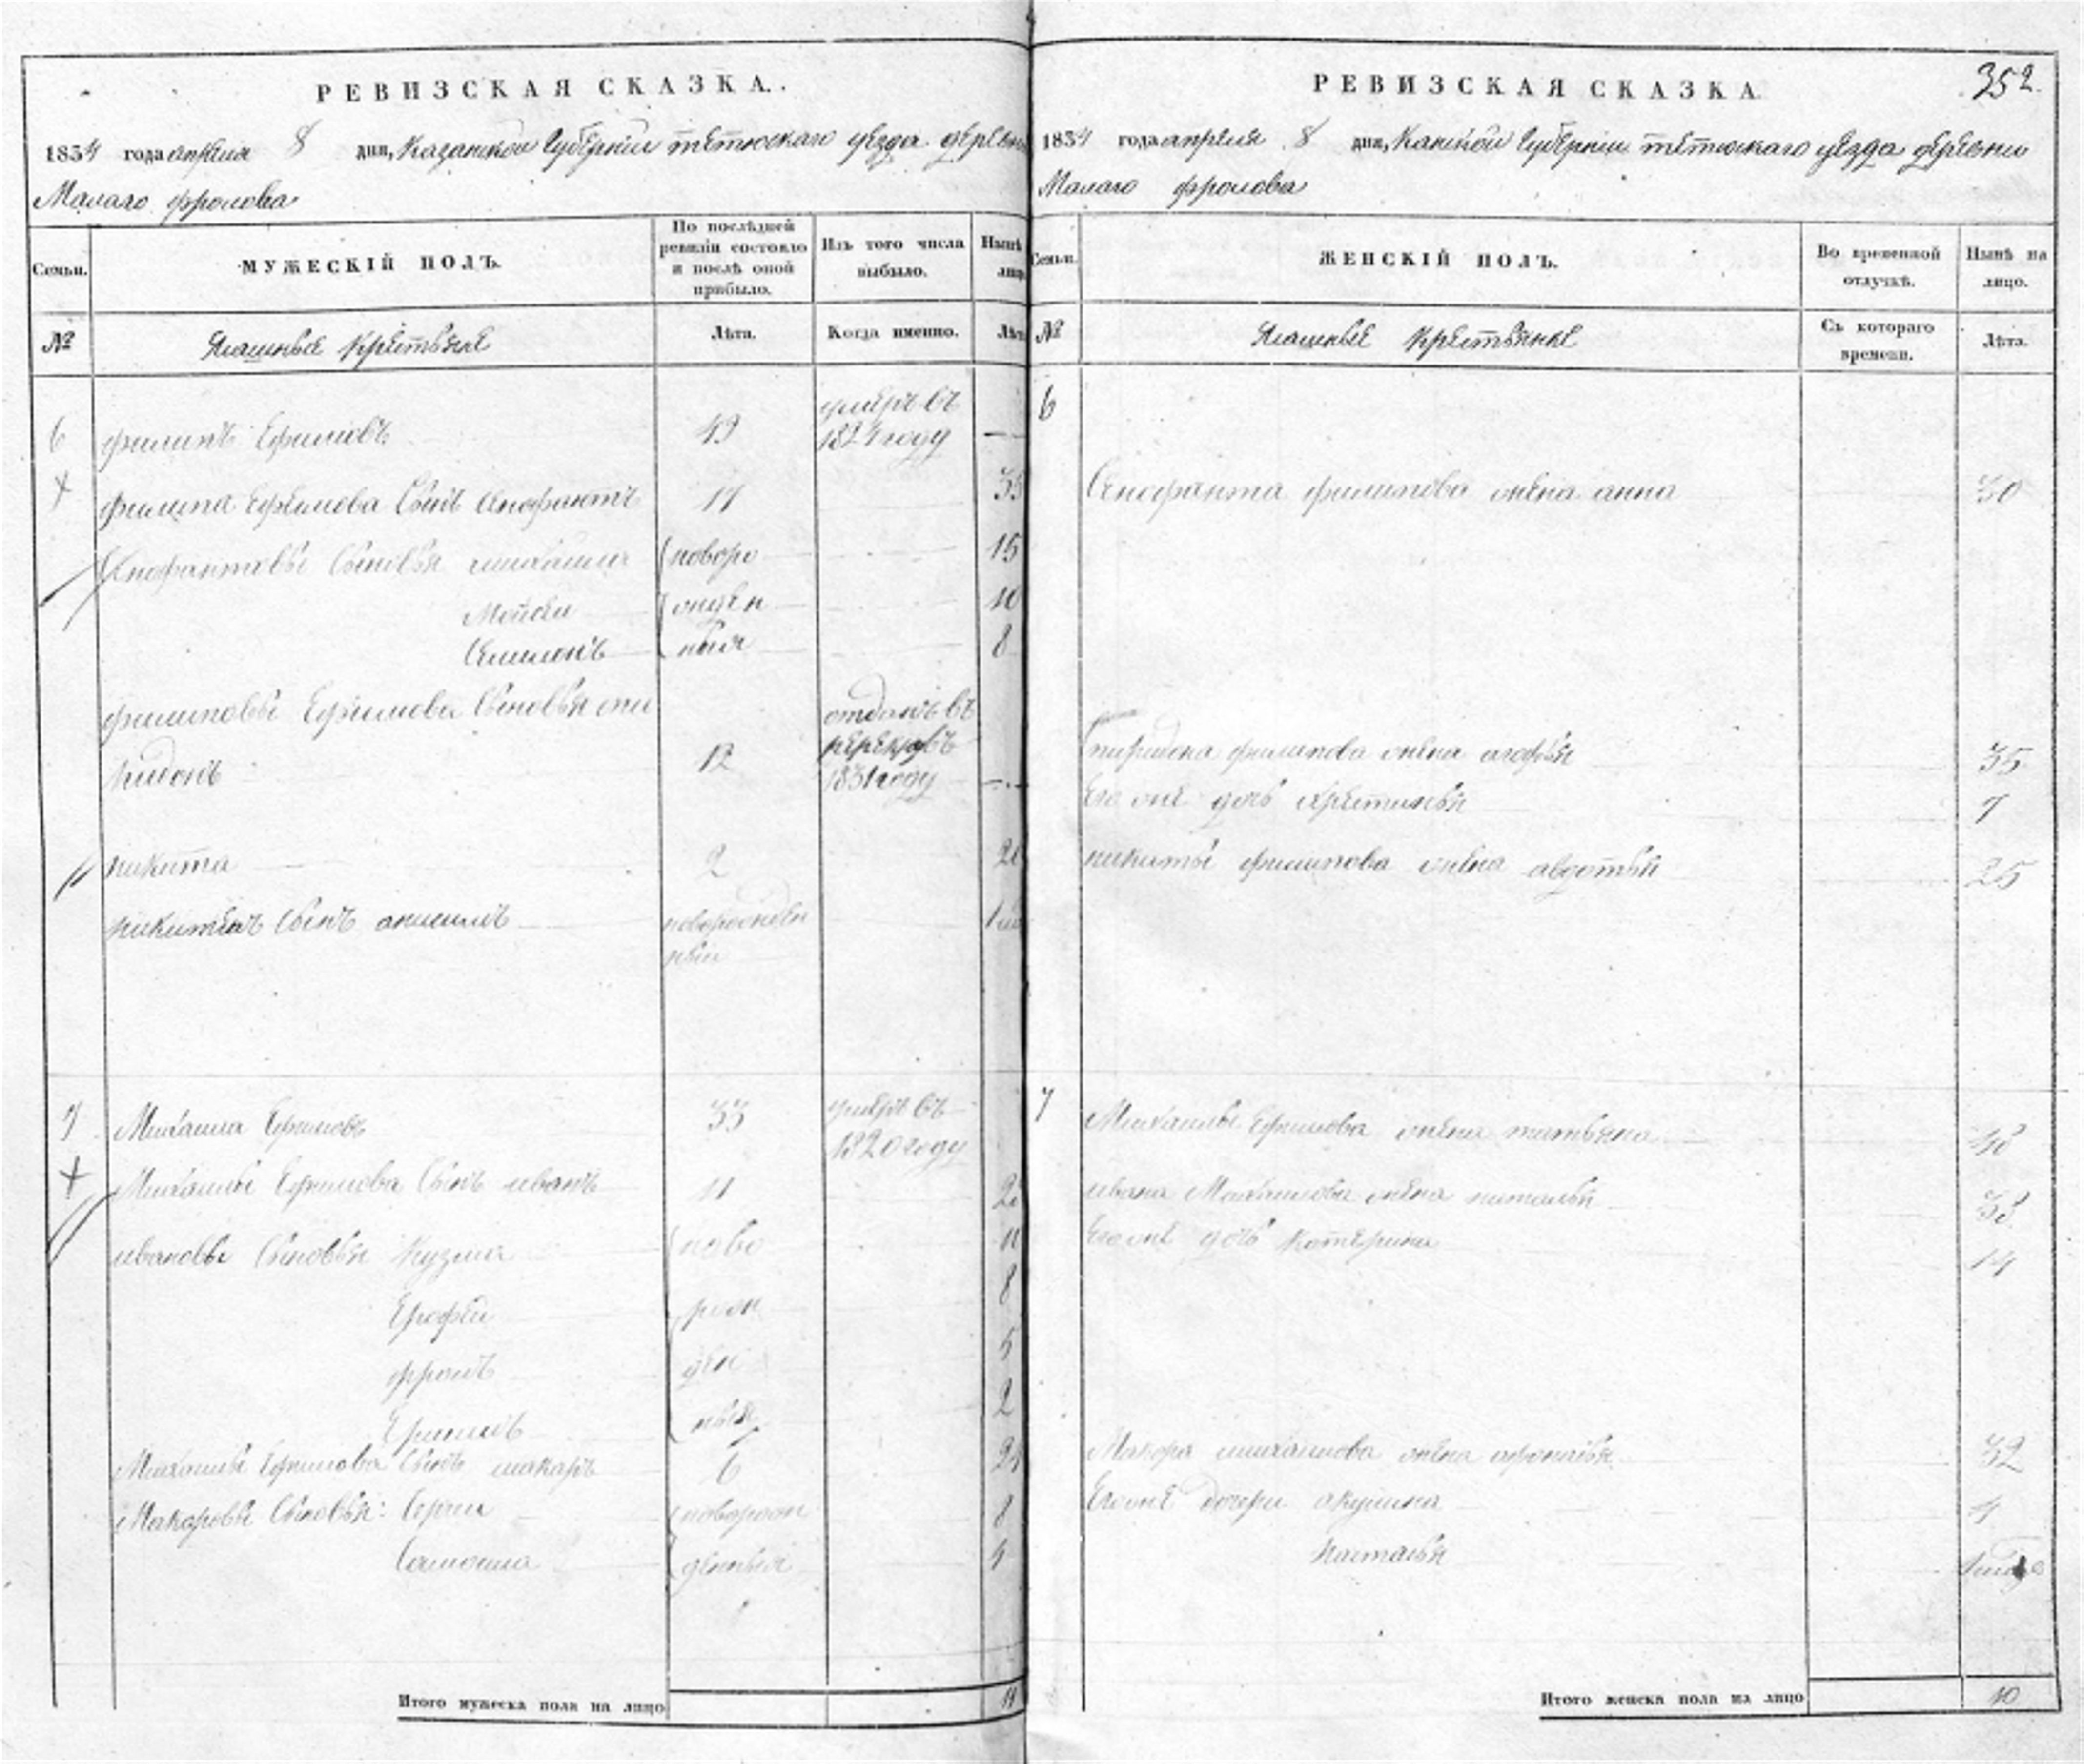 РЕВИЗСКАЯ СКАЗКА.
1834 года апреля 8 дня, Казанской Губернии тетюскаго уезда деревни
Малаго фролова
Семьи.
МУЖЕСКІЙ ПОЛЪ.
По послѣдней ревизіи состояло и послѣ оной прибыло.
Изъ того числа выбыло.
Нынѣ лицо
№
Ясашные Крестьяне
Лѣта.
Когда именно.
Лѣта
6 филипъ Ефимовъ 49 умеръ въ 1824 году —
филипа Ефимова Сынъ 17 35
Сыновья михаила новоро 15
Мойсеи жден 10
Семионъ ныя 8
филиповы Ефимова Сыновья спи
ридонъ 12 отданъ въ рекруты въ 1831 году —
никита 2
никитинъ Сынъ анисимъ новорожден ный 1
7 Михаила Ефимовъ 33 умеръ въ 1820 году
Михаилы Ефимова Сынъ иванъ 11
ивановы Сыновья Кузма ново 11
Ерофей рож 8
фролъ ден 5
Ефимъ ныя 2
Михаилы Ефимова Сынъ макаръ 6
Макаровы Сыновья: Сергей новорож 8
Самоила денныя 4
Итого мужеска пола на лицо 11
РЕВИЗСКАЯ СКАЗКА
352.
1834 года апреля 8 дня, Казнской Губернии тетюскаго уезда деревни
Малаго фролова
Семьи.
ЖЕНСКІЙ ПОЛЪ.
Во временной отлучкѣ.
Нынѣ на лицо.
№
Ясашные Крестьяне
Съ котораго времени.
Лѣта.
6
филипова жена анна 30
спиридона филипова жена агофья 35
Его же дочь Крестинья 7
никиты филипова жена авдотья 25
7 Михаилы Ефимова жена татьяна
ивана Михаилова жена наталья 33
Его же дочь Катерина 14
Макара михаилова жена афонасья 32
Его же дочери акулина 4
Наталья
Итого женска пола на лицо 10